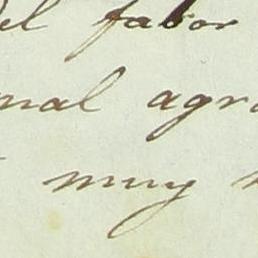 el favor
nal agra
muy